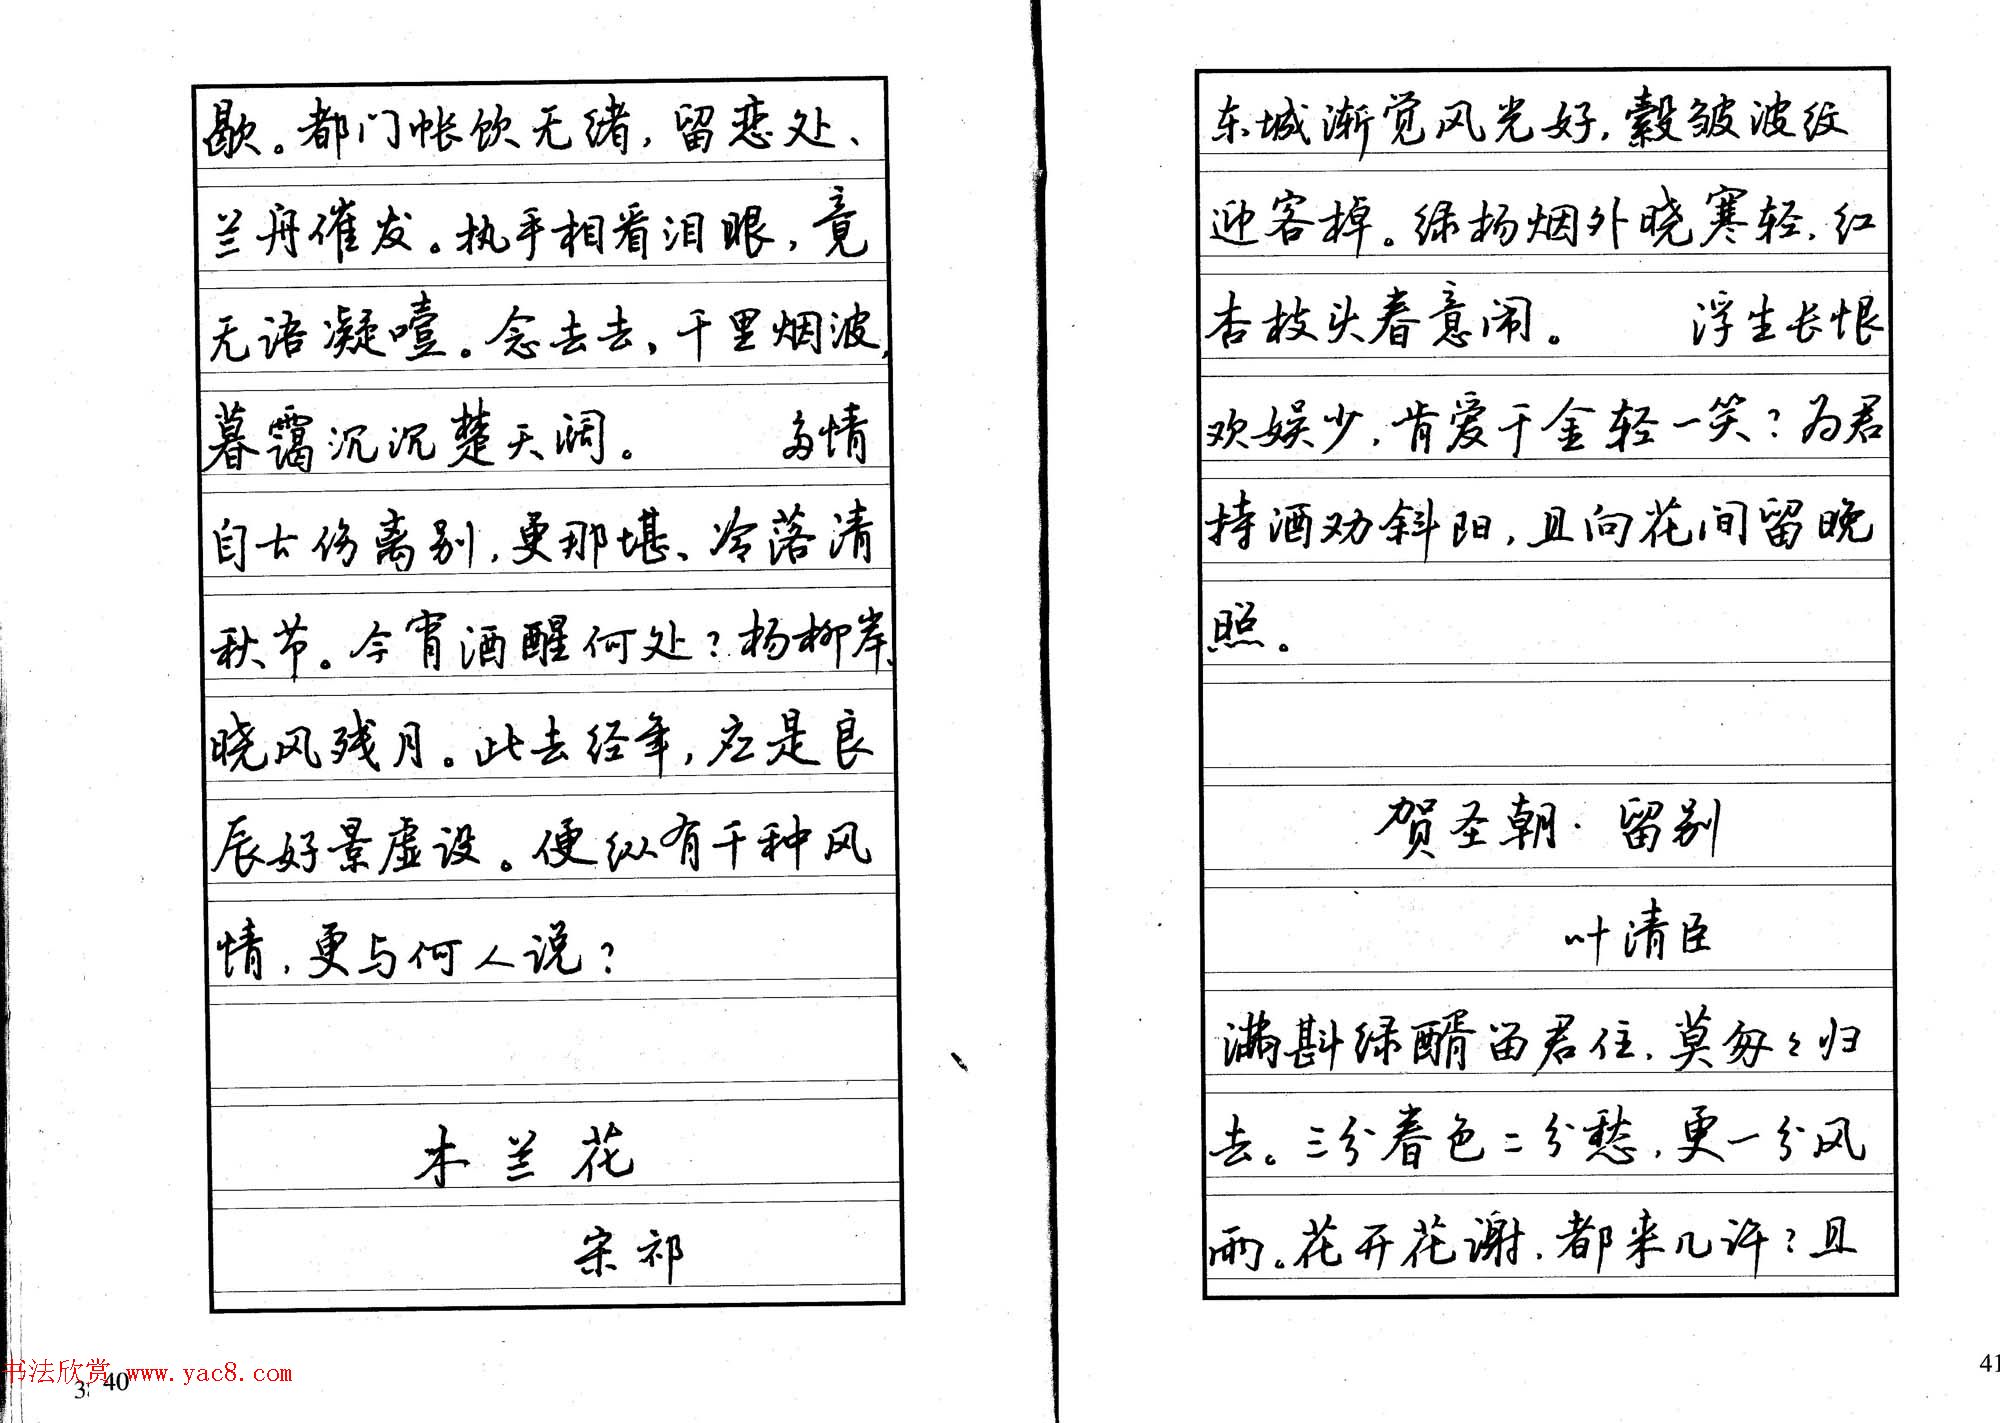 歇。都门帐饮无绪，留恋处、
兰舟催发。执手相看泪眼，竟
无语凝噎。念去去，千里烟波，
暮霭沉沉楚天阔。 多情
自古伤离别，更那堪、冷落清
秋节。今宵酒醒何处？杨柳岸、
晓风残月。此去经年，应是良
辰好景虚设。便纵有千种风
情，更与何人说？
木兰花
宋祁
书法欣赏 www.yac8.com
40
东城渐觉风光好，縠皱波纹
迎客棹。绿杨烟外晓寒轻，红
杏枝头春意闹。 浮生长恨
欢娱少，肯爱千金轻一笑？为君
持酒劝斜阳，且向花间留晚
照。
贺圣朝·留别
叶清臣
满斟绿醑留君住，莫匆々归
去。三分春色二分愁，更一分风
雨。花开花谢，都来几许？且
41